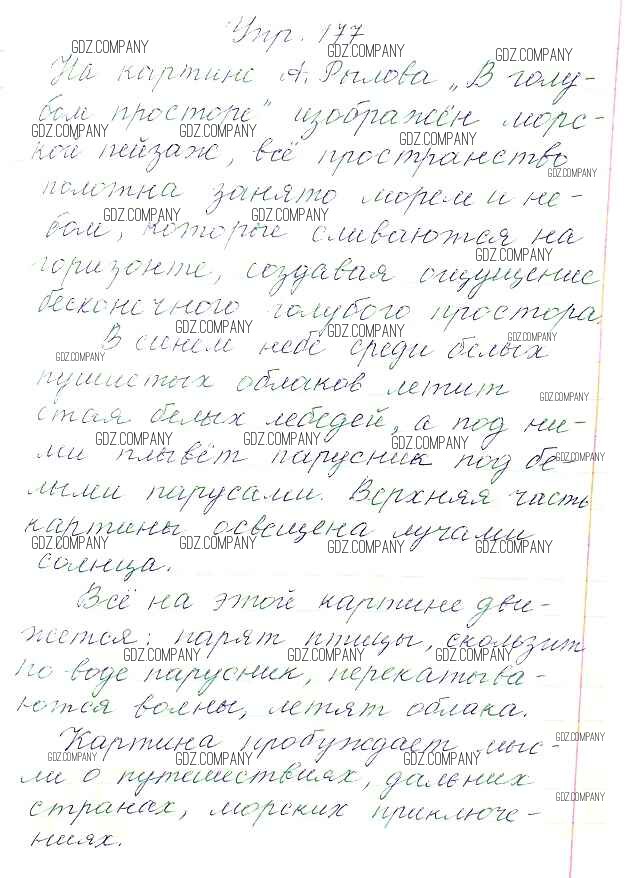 Упр. 177
На картине А. Рылова „В голу-
бом просторе" изображён морс-
кой пейзаж, всё пространство
полотна занято морем и не-
бом, которые сливаются на
горизонте, создавая ощущение
бесконечного голубого простора.
В синем небе среди белых
пушистых облаков летит
стая белых лебедей, а под ни-
ми плывёт парусник под бе-
лыми парусами. Верхняя часть
картины освещена лучами
солнца.
Всё на этой картине дви-
жется: парят птицы, скользит
по воде парусник, перекатыва-
ются волны, летят облака.
Картина пробуждает мыс-
ли о путешествиях, дальних
странах, морских приключе-
ниях.
GDZ.COMPANY